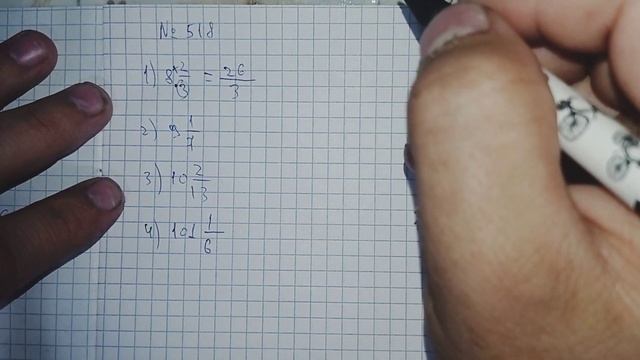 № 518
1) 8 2/3 = 26/3
2) 9 1/7
3) 10 2/13
4) 101 1/6